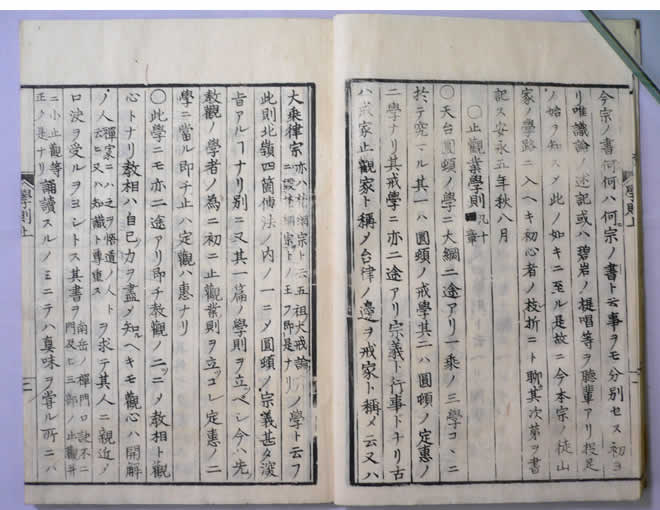 今宗ノ書何何ハ何宗ノ書ト云事ヲモ分別セス初ヨ
リ唯識論ノ述記或ハ碧岩ノ提唱等ヲ聽輩アリ足
ノ始ヲ知ス〆此ノ如キニ至ル是故ニ今本宗ノ徒山
家ノ學路ニ入ヘキ初心者ノ枝折ニト聊其次第ヲ書
記ス安永五年秋八月
○止觀業學則 凡十章
○天台圓頓ノ學ニ大綱二途アリ一乗ノ三學コヽニ
於テ究マル其一ハ圓頓ノ戒學其二ハ圓頓ノ定惠ノ
二學ナリ其戒學ニ亦二途アリ宗義ト行事トナリ古
ハ戒家止觀家ト稱〆台律ノ邉ヲ戒家ト稱〆云又ハ
大乗律宗 亦ハ梵網宗ト云五祖大戒論
ニ梵網宗トノ玉フ即是ナリ ノ學ト云フ
此則北嶺四箇傳法ノ内ノ一ニ〆圓頓ノ宗義甚タ深
旨アルコナリ別ニ又其一篇ノ學則ヲ立ヘシ今ハ先
教觀ノ學者ノ為ニ初ニ止觀業則ヲ立ツコレ定惠ノ二
學ニ當ル即チ止ハ定觀ハ惠ナリ
○此學ニモ亦二途アリ即チ教觀ノ二ツニ〆教相ト觀
心トナリ教相ハ自己ノ力ヲ盡〆知ヘキモ觀心ハ開解
ノ人 禪家ニハ之ヲ悟道ノ人ト
云ヒ又ハ知識ト尊重ス ヲ求テ其人ニ親近〆
口決ヲ受ルヲヨシトス其書ヲ 南岳ノ禪門口訣不二
門及ヒ三部ノ止觀并
ニ小止觀等
正ク是ナリ 誦讀スルノミニテハ真味ヲ嘗ル所ニハ
學則上